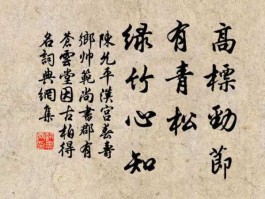 高標勁節
有青松
绿竹心知
陳允平漢宮春壽
鄉帥範尚書郡有
蒼雲堂因古柏得
名詞典網集